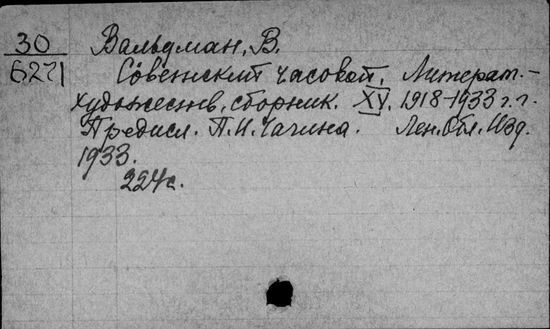 30 Вальдман, В.
6271 Советский часовой, Литерат.-
художеств, сборник. XV, 1918-1933 г.г.
Предисл. П.И. Чагина. Лен. Обл. Изд.
1933.
224с.